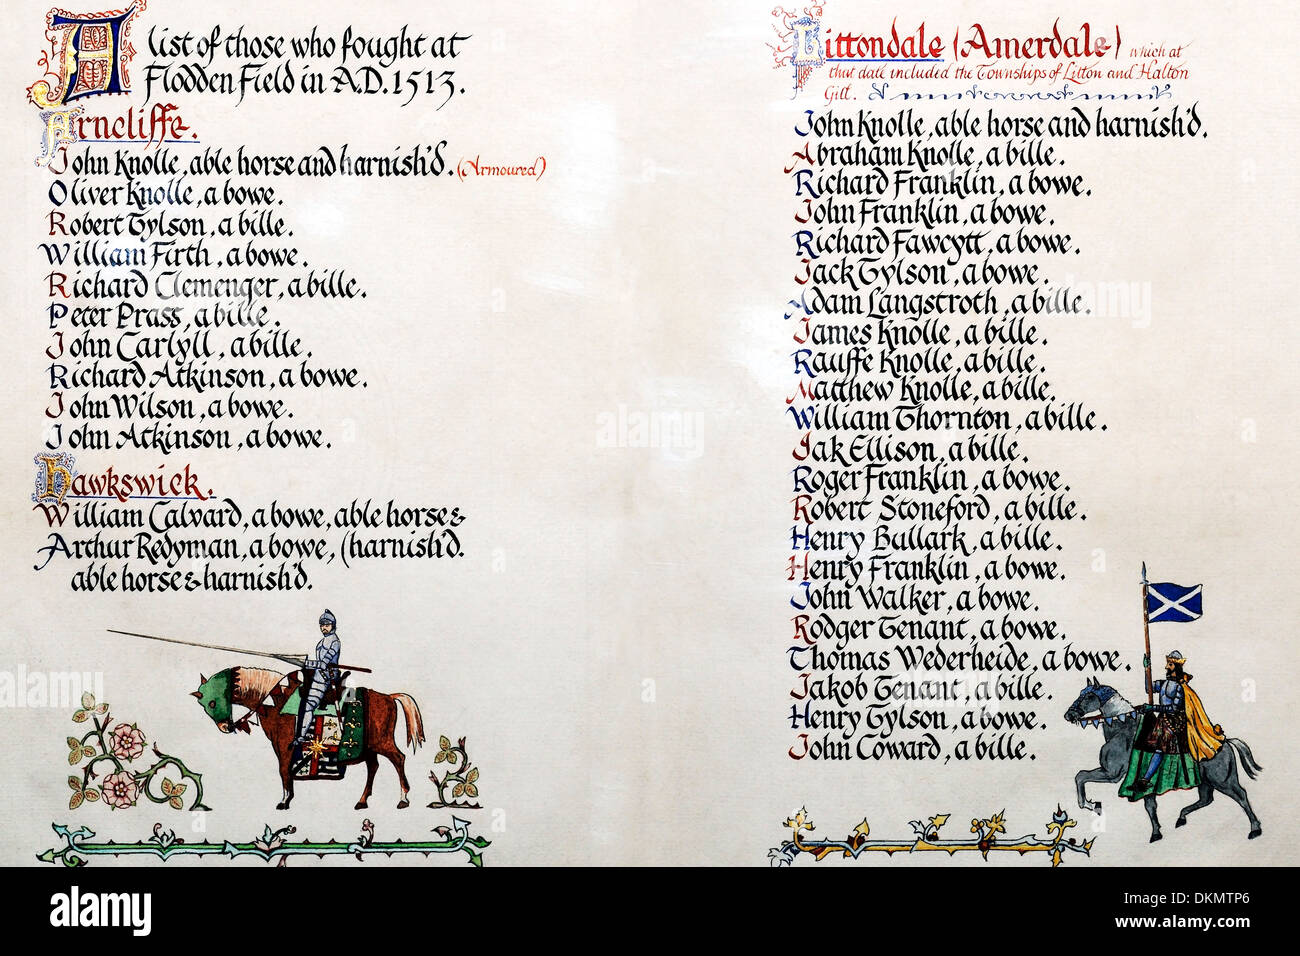 A list of those who fought at
Flodden Field in A.D. 1513.
Arncliffe.
John Knolle, able horse and harnish'd. (Armoured)
Oliver Knolle, a bowe.
Robert Tylson, a bille.
William Firth, a bowe.
Richard Clemenger, a bille.
Peter Prass, a bille.
John Carlyll, a bille.
Richard Atkinson, a bowe.
John Wilson, a bowe.
John Atkinson, a bowe.
Hawkswick.
William Calvard, a bowe, able horse &
Arthur Redyman, a bowe, (harnish'd.
able horse & harnish'd.
Littondale (Amerdale) which at
that date included the Townships of Litton and Halton
Gill.
John Knolle, able horse and harnish'd.
Abraham Knolle, a bille.
Richard Franklin, a bowe.
John Franklin, a bowe.
Richard Fawcytt, a bowe.
Jack Tylson, a bowe.
Adam Langstroth, a bille.
James Knolle, a bille.
Rauffe Knolle, a bille.
Matthew Knolle, a bille.
William Thornton, a bille.
Jak Ellison, a bille.
Roger Franklin, a bowe.
Robert Stoneford, a bille.
Henry Bullark, a bille.
Henry Franklin, a bowe.
John Walker, a bowe.
Rodger Tenant, a bowe.
Thomas Wederheide, a bowe.
Jakob Tenant, a bille.
Henry Tylson, a bowe.
John Coward, a bille.
alamy
alamy
Image ID: DKMTP6
www.alamy.com